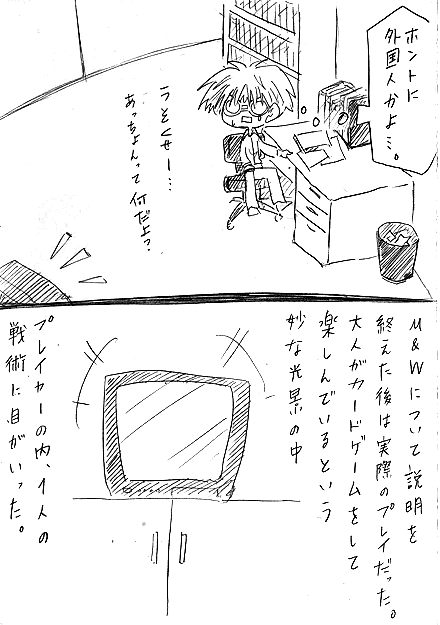 ホントに
外国人かよ…。
うそくせー…
あっちょんって何だよ?
M&Wについて説明を
終えた後は実際のプレイだった。
大人がカードゲームをして
楽しんでいるという
妙な光景の中
プレイヤーの内、1人の
戦術に目がいった。